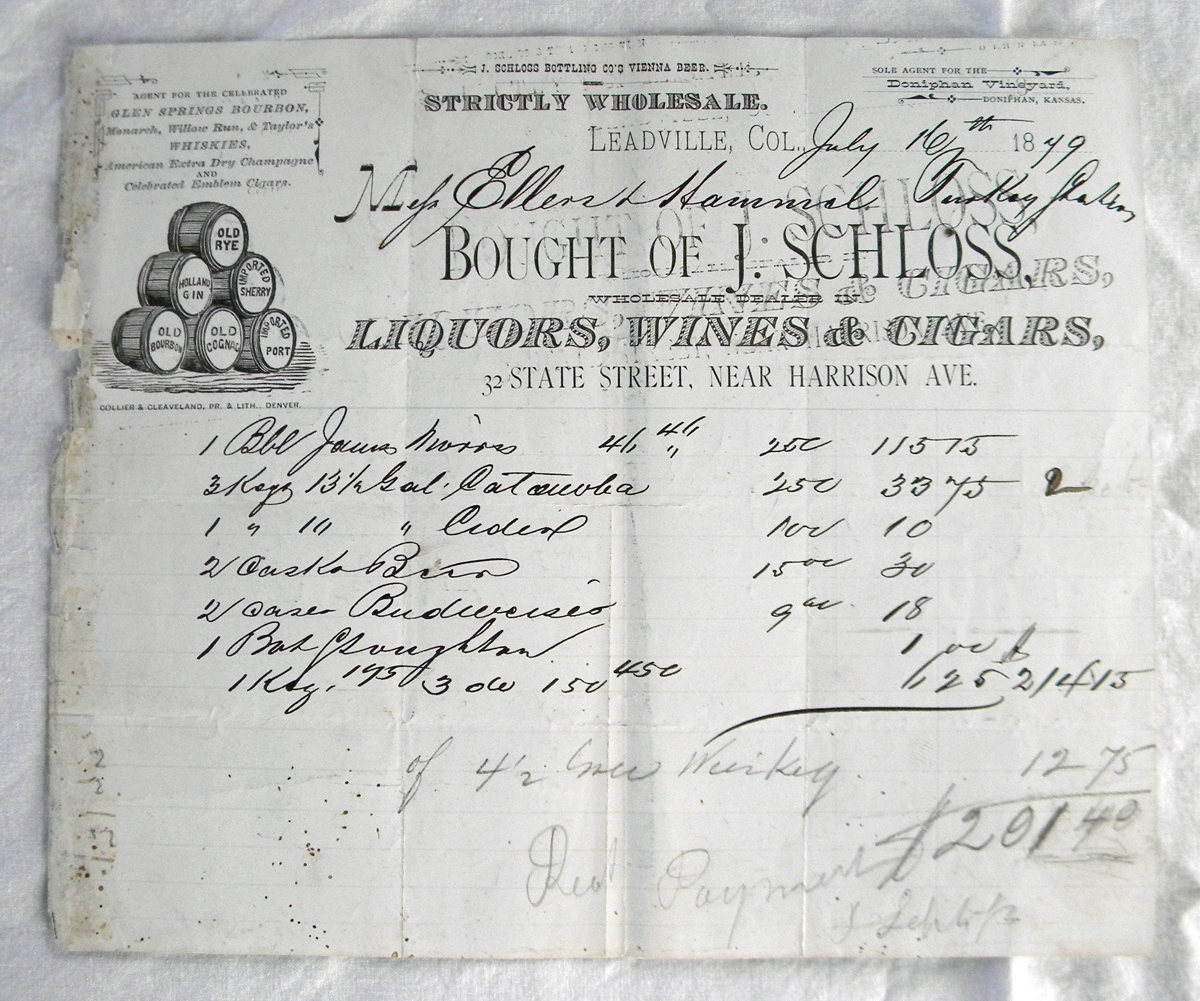 J. SCHLOSS BOTTLING CO'S VIENNA BEER.
STRICTLY WHOLESALE.
AGENT FOR THE CELEBRATED
GLEN SPRINGS BOURBON,
Monarch, Willow Run, & Taylor's
WHISKIES,
American Extra Dry Champagne
AND
Celebrated Emblem Cigars.
SOLE AGENT FOR THE
Doniphan Vineyard,
DONIPHAN, KANSAS.
LEADVILLE, COL., July 16th 1879
Mess Ellers & Hammel Turkey
BOUGHT OF J. SCHLOSS,
WHOLESALE DEALER IN
LIQUORS, WINES & CIGARS,
32 STATE STREET, NEAR HARRISON AVE.
OLD RYE
HOLLAND GIN
IMPORTED SHERRY
OLD BOURBON
OLD COGNAC
IMPORTED PORT
COLLIER & CLEAVELAND, PR. & LITH., DENVER.
1 Bbl James 250 115 15
3 Kegs 13½ Gal. Catawba 250 33 75
1 " " " Cider 100 10
2 Casks Beer 15 00 30
2 Cases Budweiser 9 00 18
1 Bot Stoughton 1 00
1 Keg, 175 3 do 150 450 6,25 214 15
of 4½ Whiskey 12 75
$201 40
Rec'd Payment
J Schloss